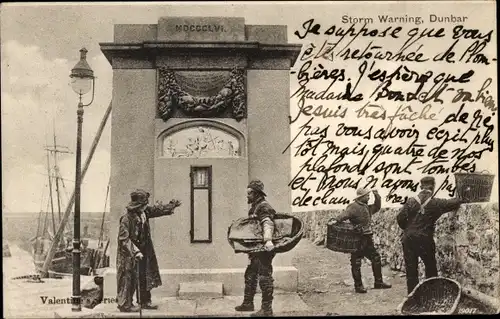 MDCCCLVI.
Storm Warning, Dunbar
Je suppose que vous
êtes retournée de Plom-
bières. J'espère que
Madame va bien
Je suis très fâché de ne
pas vous avoir écris plus
tôt mais quatre de nos
plafonds sont tombés
et nous n'avons pas
de
Valentine's Series